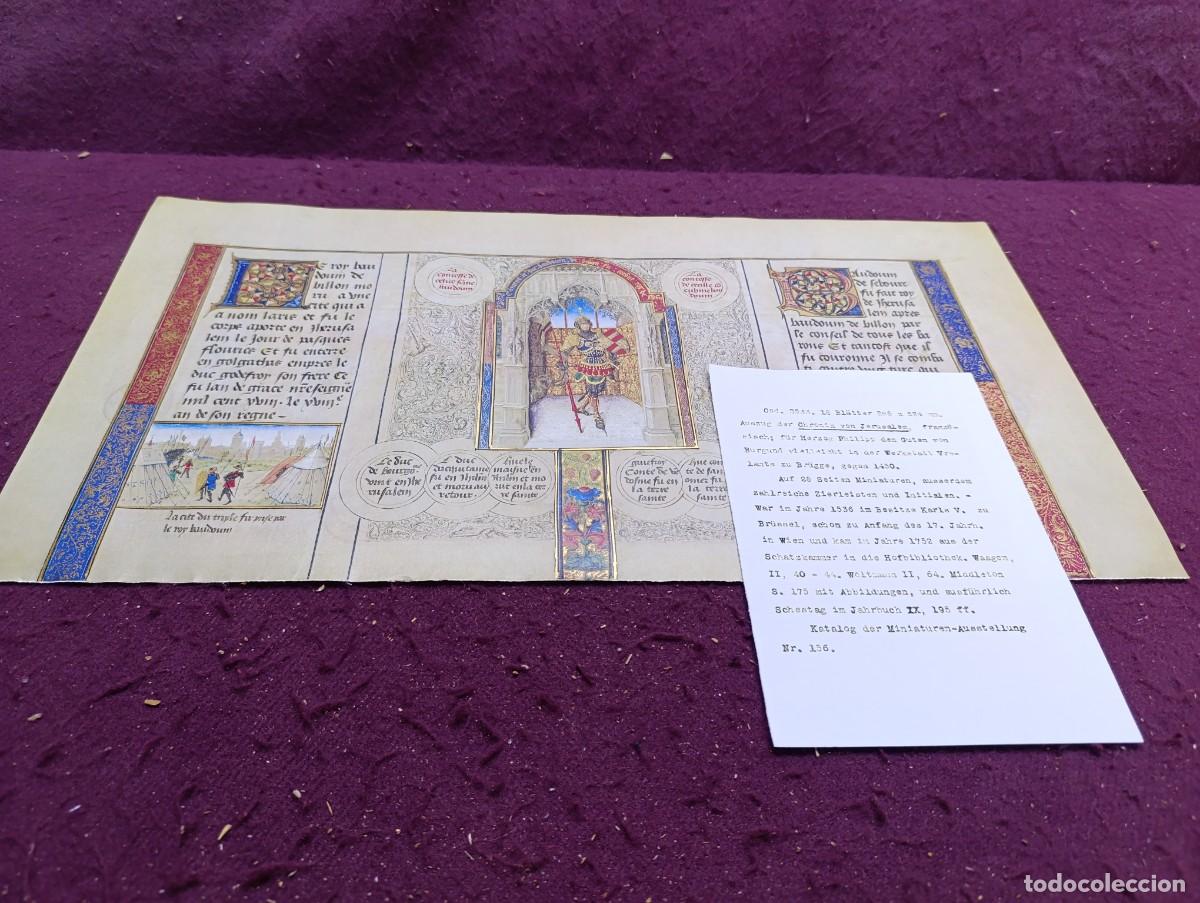 E roy bau
doum de
billon mo
ru a une
cite qui a
a nom laris et fu le
corps aporte en Jherusa
lem le Jour de pasques
flouries Et fu enterre
en golgathas empres le
duc godefroy son frere Et
fu lan de grace
mil cent xviii. le xviii.
an de son regne
La cite du triple fu prise par
le roy baudoum
La
contesse de
La
contesse
Le duc
de bourgo
doint en Jhe
rusalem
Le duc
dacquitame
fu en
et morut au
retour.
maigne en
et mo
rut en la ter
re sainte
gauffroy
Conte de
fu en
la terre
sainte
conte
fu en
la terre
sainte
Audoum
de sebourc
fu fait roy
de Jherusa
lem apres
baudoum de billon par
le conseil de tous les ba
rons Et tantost que il
fu couronne Il se comba
Cod. 2533. 18 Blätter
Auszug der Chronik von Jerusalem, franzö-
sisch; für Herzog Philipp den Guten von
Burgund vielleicht in der Werkstatt Vre-
lants zu Brügge, gegen 1450.
Auf 28 Seiten Miniaturen, ausserdem
zahlreiche Zierleisten und Initialen. -
War im Jahre 1536 im Besitze Karls V. zu
Brüssel, schon zu Anfang des 17. Jahrh.
in Wien und kam im Jahre 1752 aus der
Schatzkammer in die Hofbibliothek. Waagen,
II, 40 - 44. Woltmann II, 64. Middleton
S. 175 mit Abbildungen, und ausführlich
Schestag im Jahrbuch IX, 195 ff.
Katalog der Miniaturen-Ausstellung
Nr. 136.
todocoleccion